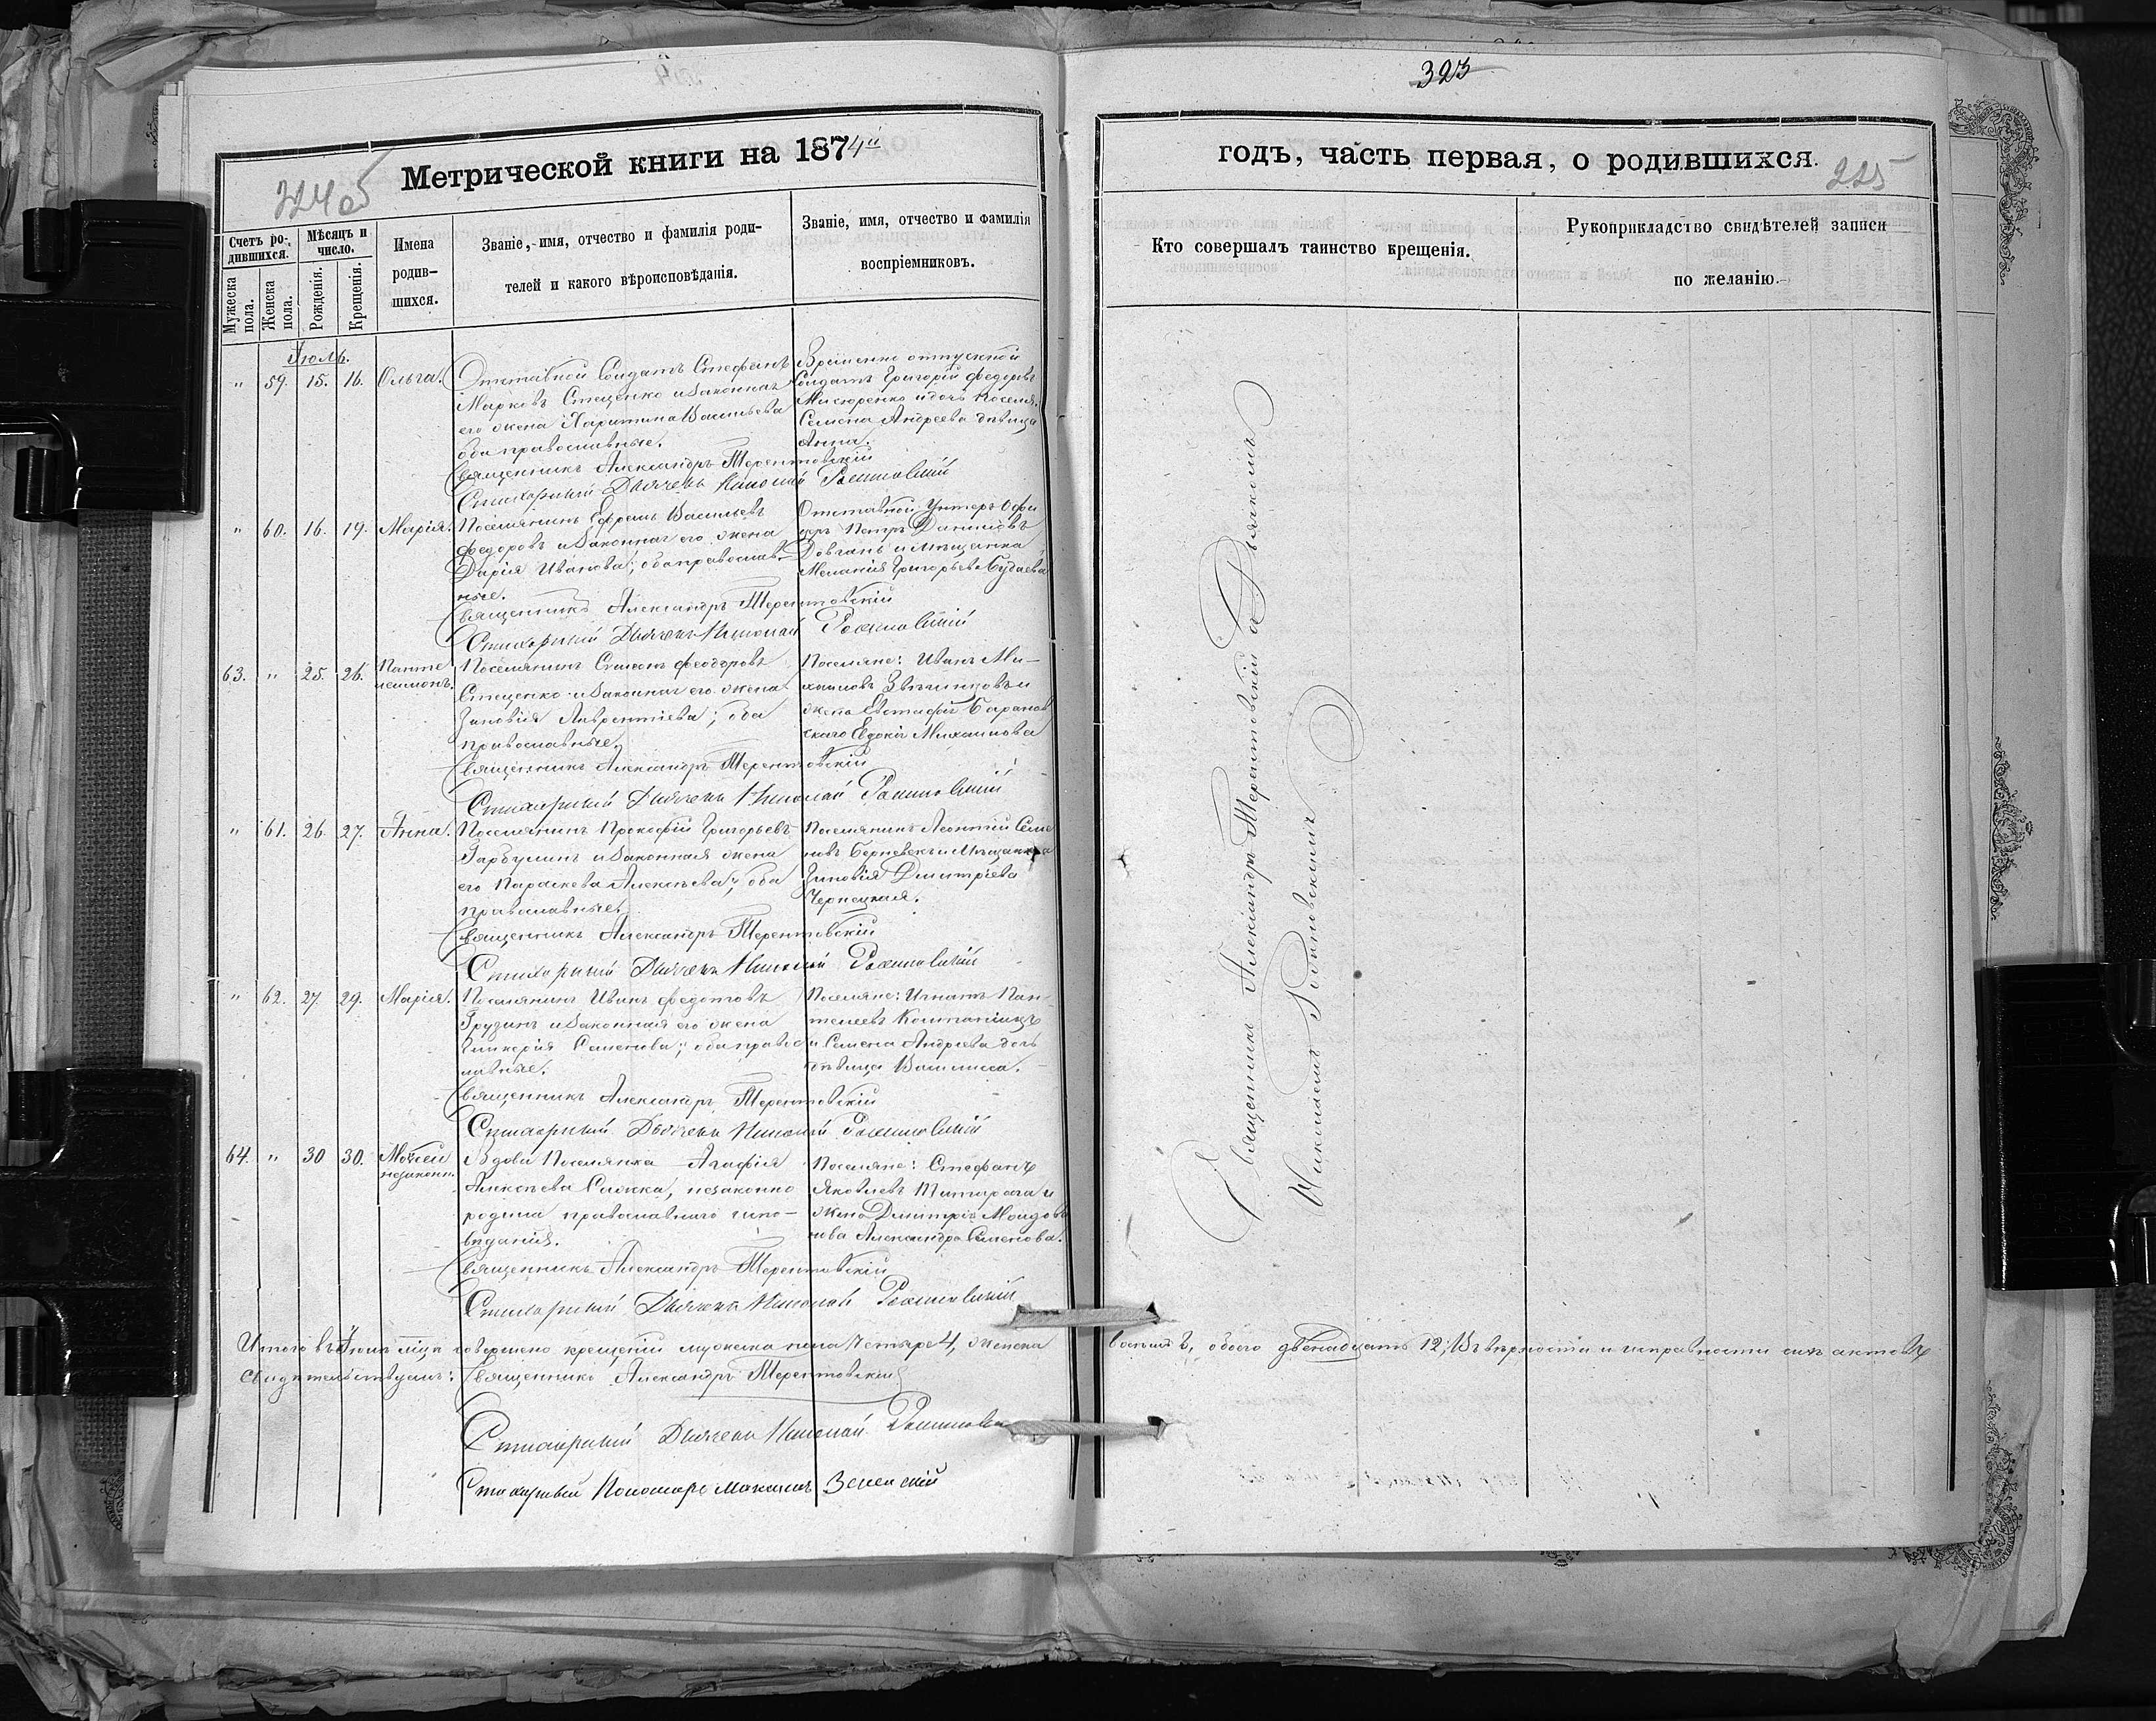 323
Метрической книги на 1874й
годъ, часть первая, о родившихся.
225
Счетъ ро-
дившихся.
Мужеска пола.
Женска пола.
Мѣсяцъ и
число.
Рожденія.
Крещенія.
Имена
родив-
шихся.
Званіе, имя, отчество и фамилія роди-
телей и какого вѣроисповѣданія.
Званіе, имя, отчество и фамилія
воспріемниковъ.
Кто совершалъ таинство крещенія.
Рукоприкладство свидѣтелей записи
по желанію.
Іюль.
" 59. 15. 16. Ольга.
Отставной Солдатъ Стефанъ
Марковъ Стеценко и законная
его жена Харитина Васильева
оба православные.
Временно отпускной
Солдатъ Григорій Федоровъ
Мисюренко и дочь Поселян.
Семена Андреева дѣвица
Анна.
Священникъ Александръ Терентовскій
Стихарный Дьячекъ Николай
" 60. 16. 19. Марія.
Поселянинъ Ефремъ Васильевъ
Федоровъ и законная его жена
Дарія Иванова; оба православ-
ные.
Отставной Унтеръ Офи
церъ Петръ Даниловъ
Довгань и мѣщанка
Меланія Григорьева
Священникъ Александръ Терентовскій
Стихарный Дьячекъ Николай
63. " 25. 26. Панте
леимонъ.
Поселянинъ Симеонъ Феодоровъ
Стеценко и законная его жена
Зиновія Лаврентіева; оба
православные.
Поселяне: Иванъ Ми-
хаиловъ и
жена Евстафія Баранов
скаго Евдокія Михаилова
Священникъ Александръ Терентовскій
Стихарный Дьячекъ Николай
" 61. 26. 27. Анна.
Поселянинъ Прокофій Григорьевъ
Гарбузинъ и законная жена
его Параскева Алексѣева; оба
православные.
Поселянинъ Леонтій Семе
новъ и мѣщанка
Зиновія Дмитріева
Чернецкая.
Священникъ Александръ Терентовскій
Стихарный Дьячекъ Николай
" 62. 27. 29. Марія.
Поселянинъ Иванъ Федотовъ
Грузинъ и законная его жена
Гликерія Семенова; оба правос
лавные.
Поселяне: Игнатъ Пан-
телеевъ
и Семена Андреева дочь
дѣвица Василиса.
Священникъ Александръ Терентовскій
Стихарный Дьячекъ Николай
64. " 30 30. Моѵсей
незаконн.
Вдова Поселянка Агафія
Алексѣева незаконно
родила православнаго испо-
вѣданія.
Поселяне: Стефанъ
Яковлевъ и
жена Дмитрія Молдов
нова Александра Семенова.
Священникъ Александръ Терентовскій
Стихарный Дьячекъ Николай
Священникъ Александръ Терентовскій съ Дьячкомъ
Николаемъ
Итого въ Іюлѣ мцѣ совершено крещеній мужеска пола четыре 4, женска
восемь, обоего двенадцать 12; Въ вѣрности и исправности сихъ актовъ
свидѣтельствуемъ: Священникъ Александръ Терентовскій
Стихарный Дьячекъ Николай
Стихарный Пономарь Зеленскій